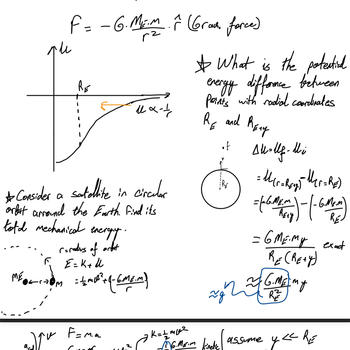 F = -G·M_E·m/r² · r̂ (Grav. force)
U
R_E
U ∝ -1/r
* What is the potential
energy difference between
points with radial coordinates
R_E and R_E+y
ΔU = U_f - U_i
= U(r=R_E+y) - U(r=R_E)
= (-G M_E·m/(R_E+y)) - (-G M_E·m/R_E)
= G M_E·m·y/(R_E (R_E+y)) exact
≈ G·M_E/R_E² m y
≈g
R_E
* Consider a satellite in circular
orbit arround the Earth. Find its
total mechanical energy.
r=radius of orbit
M_E r m
E = K + U
= ½ m v² + (-G M_E·m/r)
F = ma
assume y << R_E